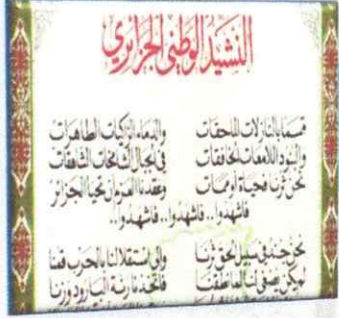 النشيد الوطني الجزائري
قسما بالنازلات الماحقات والدماء الزاكيات الطاهرات
والبنود اللامعات الخافقات في الجبال الشامخات الشاهقات
نحن ثرنا فحياة أو ممات وعقدنا العزم أن تحيا الجزائر
فاشهدوا.. فاشهدوا.. فاشهدوا..
نحن جند في سبيل الحق ثرنا وإلى استقلالنا بالحرب قمنا
لم يكن يصغى لنا لما نطقنا فاتخذنا رنة البارود وزنا